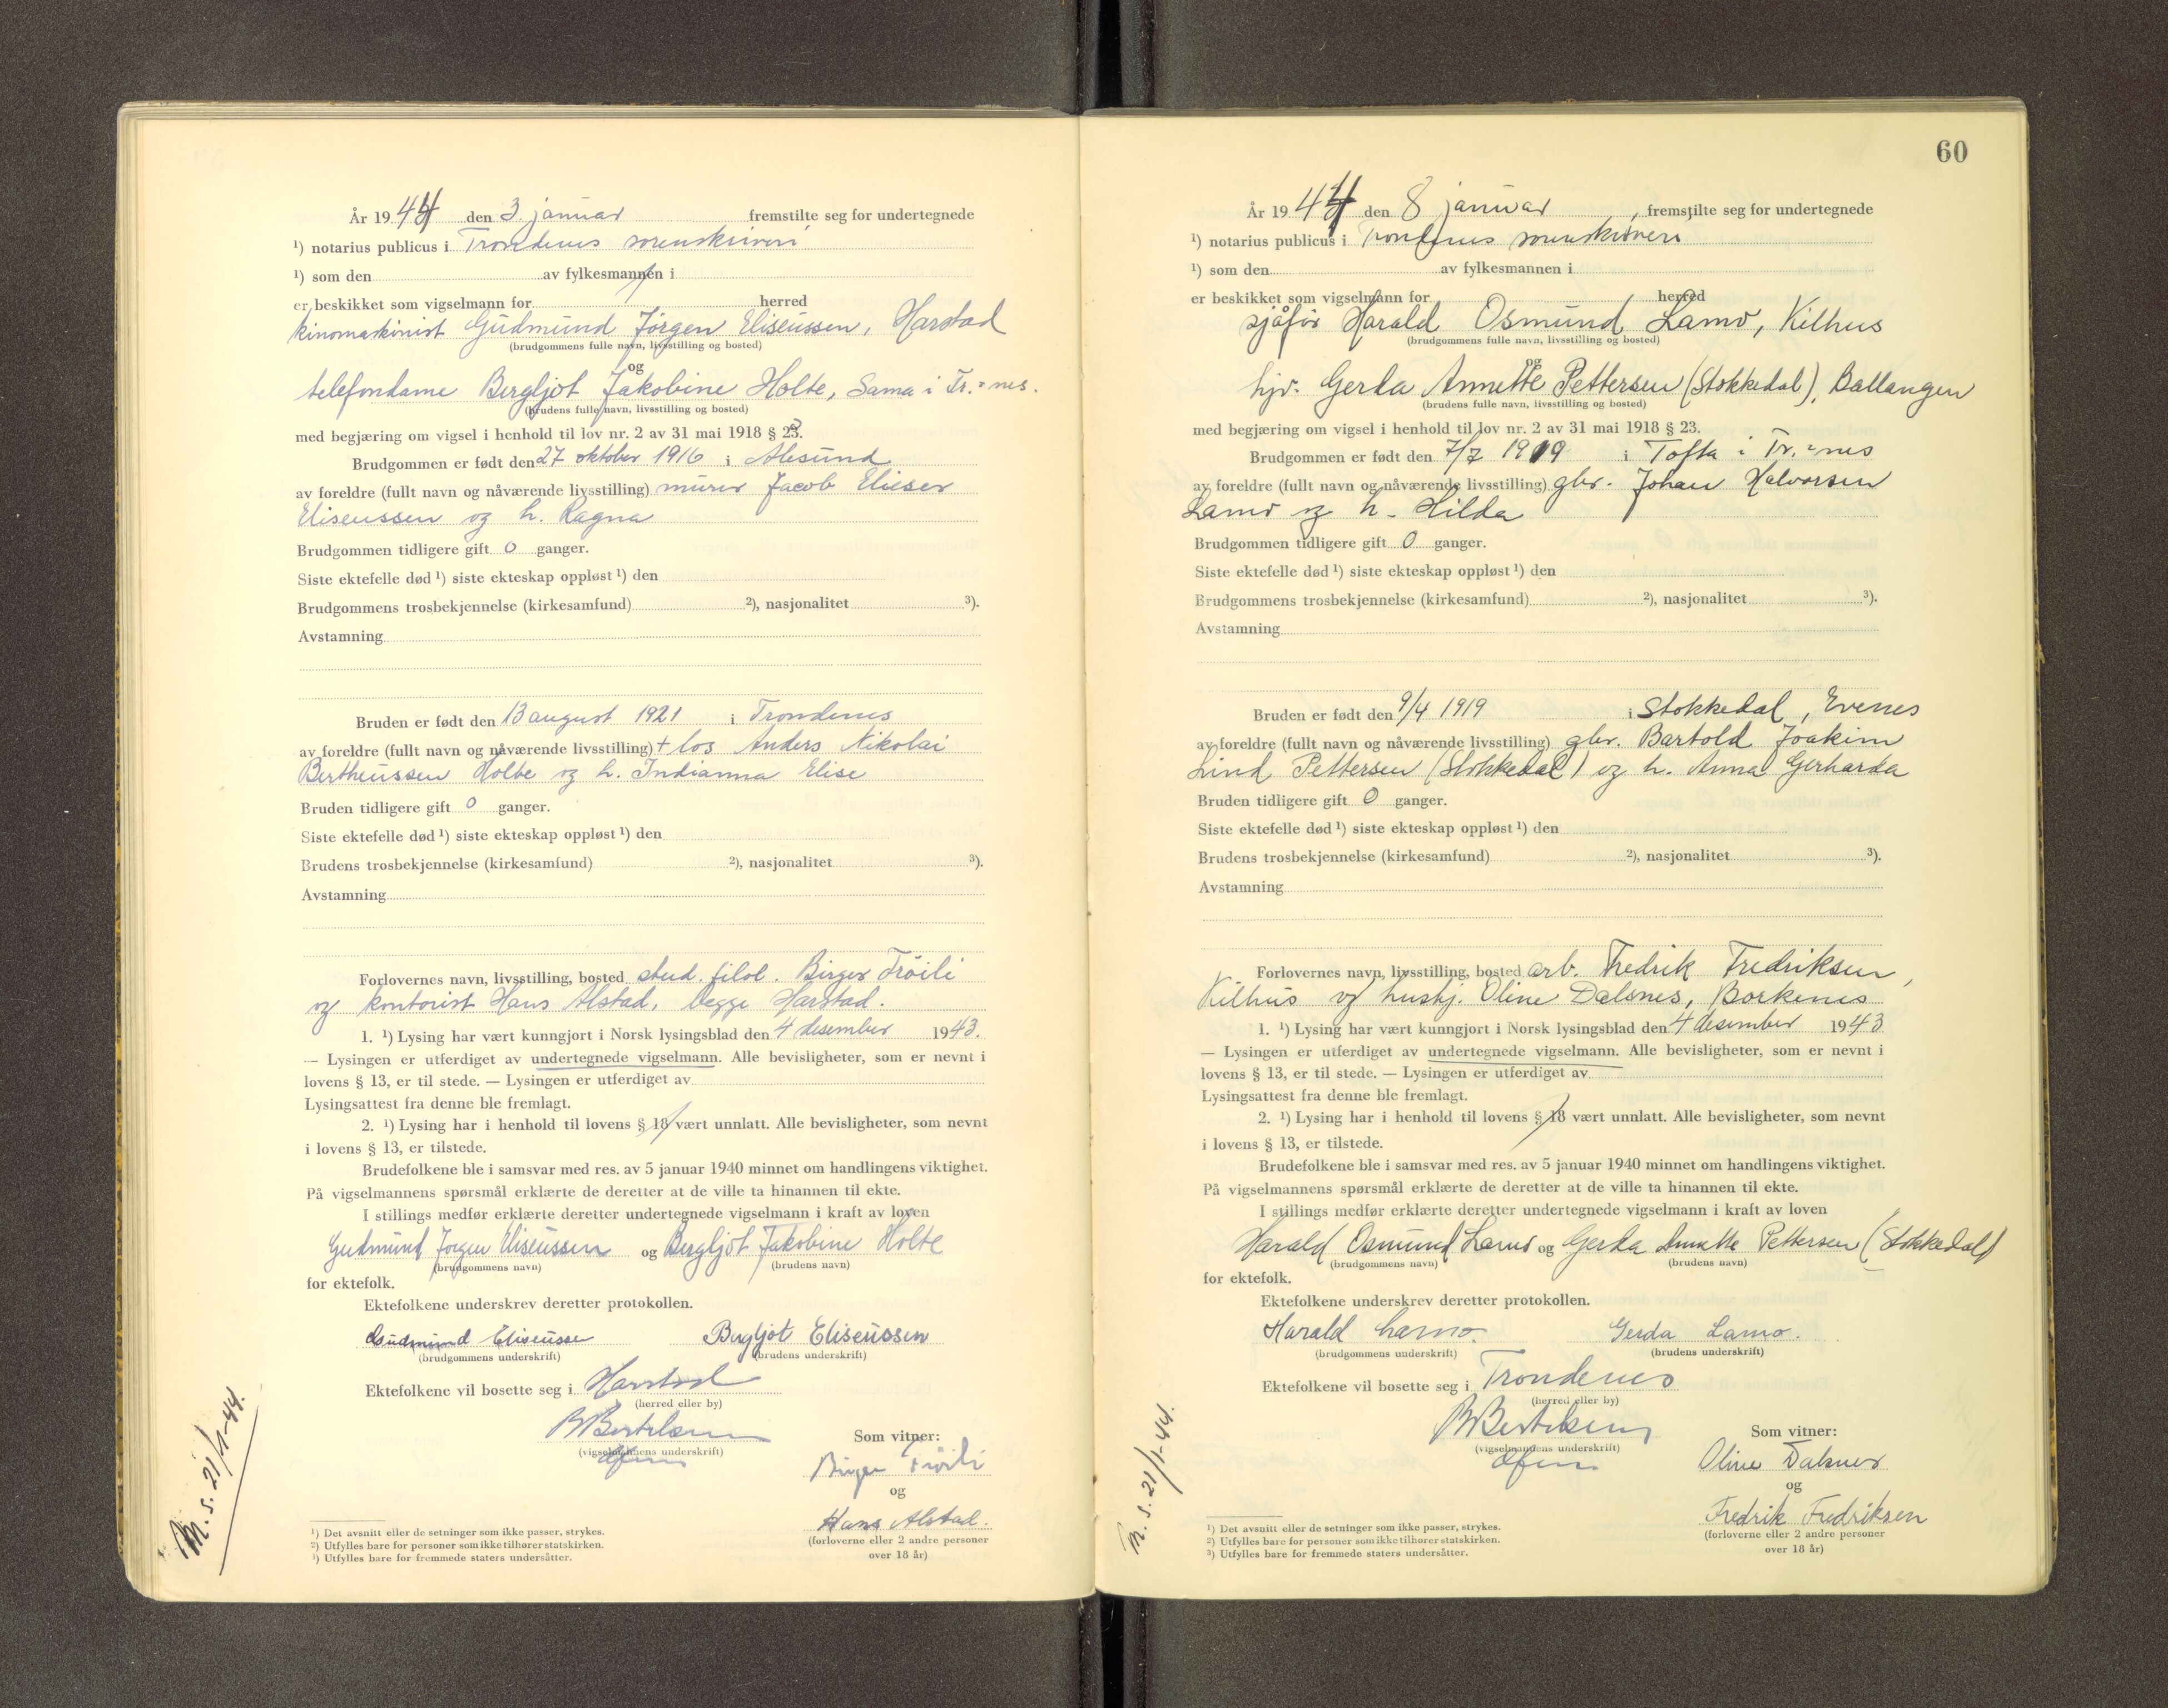 År 1944 den 3. januar fremstilte seg for undertegnede
¹) notarius publicus i Trondenes sorenskriveri
¹) som den av fylkesmannen i
er beskikket som vigselmann for herred
kinomaskinist Gudmund Jørgen Eliseussen, Harstad
(brudgommens fulle navn, livsstilling og bosted)
og
telefondame Bergljot Jakobine Holte, Sama i Tr.=nes.
(brudens fulle navn, livsstilling og bosted)
med begjæring om vigsel i henhold til lov nr. 2 av 31 mai 1918 § 23.
Brudgommen er født den 27 oktober 1916 i Ålesund
av foreldre (fullt navn og nåværende livsstilling) murer Jacob Elieser
Eliseussen og h. Ragna
Brudgommen tidligere gift 0 ganger.
Siste ektefelle død ¹) siste ekteskap oppløst ¹) den
Brudgommens trosbekjennelse (kirkesamfund) ²), nasjonalitet ³).
Avstamning
Bruden er født den 13 august 1921 i Trondenes
av foreldre (fullt navn og nåværende livsstilling) + los Anders Nikolai
Bertheussen Holte og h. Indianna Elise
Bruden tidligere gift 0 ganger.
Siste ektefelle død ¹) siste ekteskap oppløst ¹) den
Brudens trosbekjennelse (kirkesamfund) ²), nasjonalitet ³).
Avstamning
Forlovernes navn, livsstilling, bosted stud. filol. Birger Tröili
og kontorist Hans Alstad, begge Harstad.
1. ¹) Lysing har vært kunngjort i Norsk lysingsblad den 4 desember 1943.
— Lysingen er utferdiget av undertegnede vigselmann. Alle bevisligheter, som er nevnt i
lovens § 13, er til stede. — Lysingen er utferdiget av
Lysingsattest fra denne ble fremlagt.
2. ¹) Lysing har i henhold til lovens § 18 vært unnlatt. Alle bevisligheter, som nevnt
i lovens § 13, er tilstede.
Brudefolkene ble i samsvar med res. av 5 januar 1940 minnet om handlingens viktighet.
På vigselmannens spørsmål erklærte de deretter at de ville ta hinannen til ekte.
I stillings medfør erklærte deretter undertegnede vigselmann i kraft av loven
Gudmund Jørgen Eliseussen og Bergljot Jakobine Holte
(brudgommens navn) (brudens navn)
for ektefolk.
Ektefolkene underskrev deretter protokollen.
Gudmund Eliseussen Bergljot Eliseussen
(brudgommens underskrift) (brudens underskrift)
Ektefolkene vil bosette seg i Harstad
(herred eller by)
B Bertelsen
(vigselmannens underskrift)
Som vitner:
Birger Tröili
og
Hans Alstad.
(forloverne eller 2 andre personer
over 18 år)
M. s. 21/1-44.
¹) Det avsnitt eller de setninger som ikke passer, strykes.
²) Utfylles bare for personer som ikke tilhører statskirken.
³) Utfylles bare for fremmede staters undersåtter.
60
År 1944 den 8 januar, fremstilte seg for undertegnede
¹) notarius publicus i Trondenes sorenskriveri
¹) som den av fylkesmannen i
er beskikket som vigselmann for herred
sjåfør Harald Osmund Lamo, Kilhus
(brudgommens fulle navn, livsstilling og bosted)
og
hjv. Gerda Annette Pettersen (Stokkedal), Ballangen
(brudens fulle navn, livsstilling og bosted)
med begjæring om vigsel i henhold til lov nr. 2 av 31 mai 1918 § 23.
Brudgommen er født den 7/7 1919 i Tofta i Tr.=nes
av foreldre (fullt navn og nåværende livsstilling) gbr. Johan Halvorsen
Lamo og h. Hilda
Brudgommen tidligere gift 0 ganger.
Siste ektefelle død ¹) siste ekteskap oppløst ¹) den
Brudgommens trosbekjennelse (kirkesamfund) ²), nasjonalitet ³).
Avstamning
Bruden er født den 9/4 1919 i Stokkedal, Evenes
av foreldre (fullt navn og nåværende livsstilling) gbr. Bartold Joakim
Lind Pettersen (Stokkedal) og h. Anna Gerharda
Bruden tidligere gift 0 ganger.
Siste ektefelle død ¹) siste ekteskap oppløst ¹) den
Brudens trosbekjennelse (kirkesamfund) ²), nasjonalitet ³).
Avstamning
Forlovernes navn, livsstilling, bosted arb. Fredrik Fredriksen,
Kilhus og hushj. Oline Dalsnes, Borkenes
1. ¹) Lysing har vært kunngjort i Norsk lysingsblad den 4 desember 1943
— Lysingen er utferdiget av undertegnede vigselmann. Alle bevisligheter, som er nevnt i
lovens § 13, er til stede. — Lysingen er utferdiget av
Lysingsattest fra denne ble fremlagt.
2. ¹) Lysing har i henhold til lovens § 18 vært unnlatt. Alle bevisligheter, som nevnt
i lovens § 13, er tilstede.
Brudefolkene ble i samsvar med res. av 5 januar 1940 minnet om handlingens viktighet.
På vigselmannens spørsmål erklærte de deretter at de ville ta hinannen til ekte.
I stillings medfør erklærte deretter undertegnede vigselmann i kraft av loven
Harald Osmund Lamo og Gerda Annette Pettersen (Stokkedal)
(brudgommens navn) (brudens navn)
for ektefolk.
Ektefolkene underskrev deretter protokollen.
Harald Lamo. Gerda Lamo.
(brudgommens underskrift) (brudens underskrift)
Ektefolkene vil bosette seg i Trondenes
(herred eller by)
B Bertelsen
(vigselmannens underskrift)
Som vitner:
Oline Dalsnes
og
Fredrik Fredriksen
(forloverne eller 2 andre personer
over 18 år)
M. s. 21/1-44.
¹) Det avsnitt eller de setninger som ikke passer, strykes.
²) Utfylles bare for personer som ikke tilhører statskirken.
³) Utfylles bare for fremmede staters undersåtter.